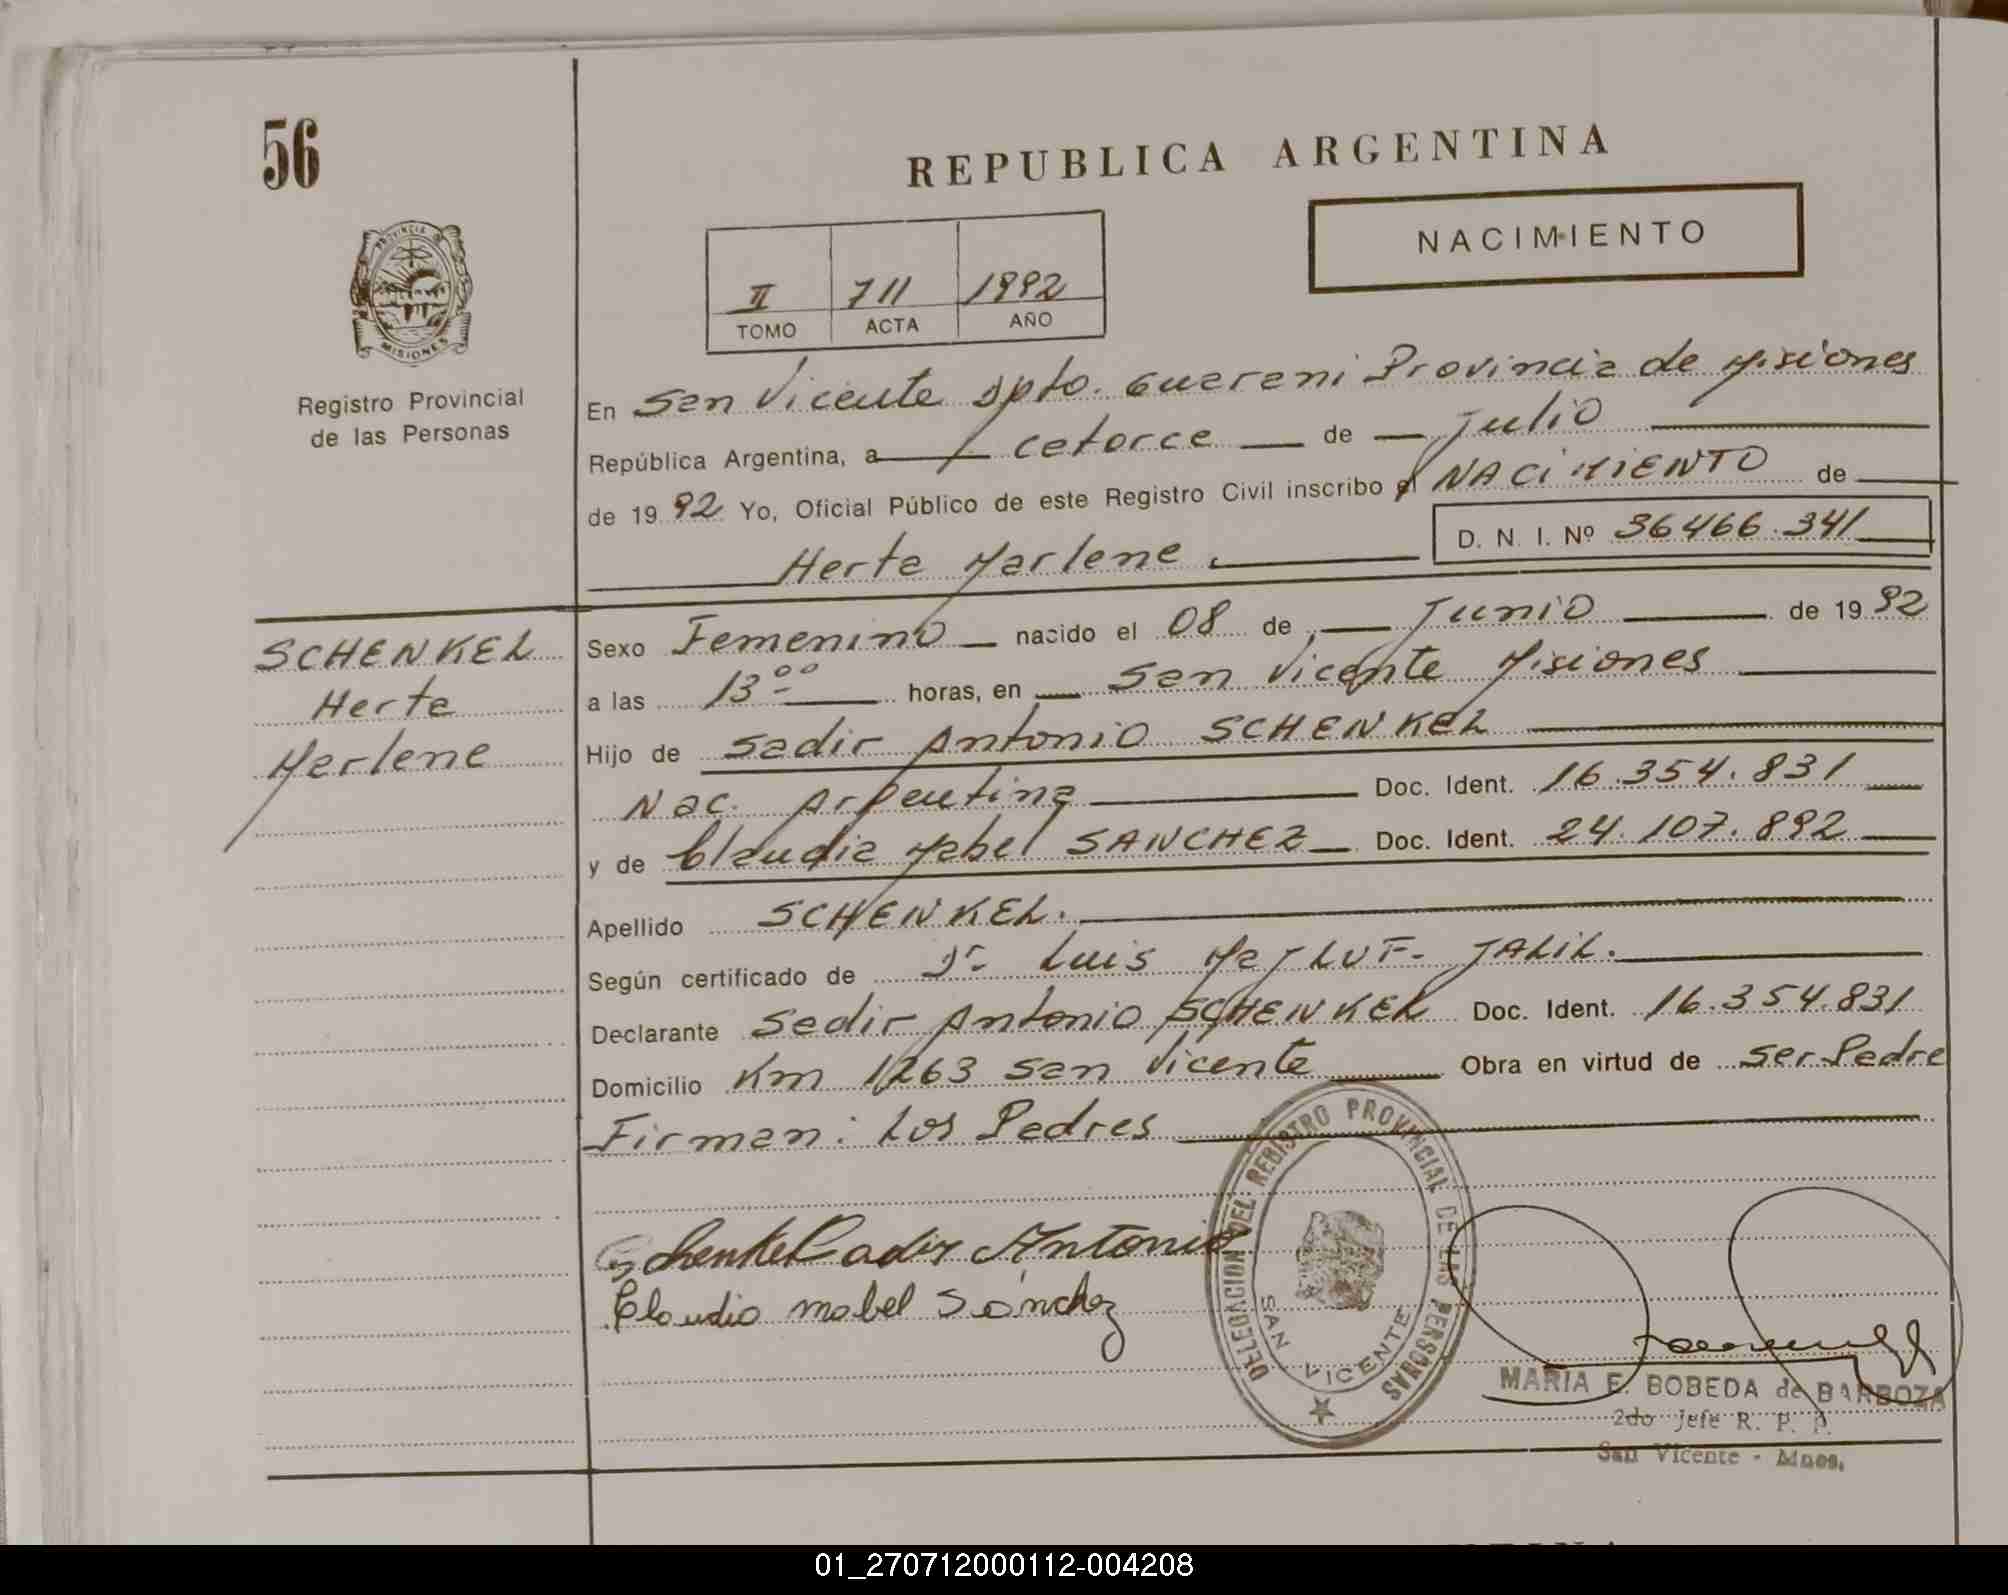 56
REPUBLICA ARGENTINA
NACIMIENTO
II 711 1992
TOMO ACTA AÑO
PROVINCIA DE
MISIONES
Registro Provincial
de las Personas
En San Vicente Dpto. Guarani Provincia de Misiones
República Argentina, a catorce de Julio
de 1992 Yo, Oficial Público de este Registro Civil inscribo el NACIMIENTO de
Herta Marlene. D. N. I. Nº 36466.341
SCHENKEL
Herta
Marlene
Sexo Femenino nacido el 08 de Junio de 1992
a las 13ºº horas, en San Vicente Misiones
Hijo de Sadir Antonio SCHENKEL
Nac. Argentina Doc. Ident. 16.354.831
y de Claudia Mabel SANCHEZ Doc. Ident. 24.107.892
Apellido SCHENKEL.
Según certificado de Dr. Luis MAJLUF- JALIL.
Declarante Sadir Antonio SCHENKEL Doc. Ident. 16.354.831
Domicilio Km 1263 San Vicente Obra en virtud de ser Padre
Firman: Los Padres
Schenkel adir Antonio
Claudia mabel Sánchez
DELEGACION DEL REGISTRO PROVINCIAL DE LAS PERSONAS
SAN VICENTE
MARIA E. BOBEDA de BARBOZA
2do Jefe R. P. P.
San Vicente - Mnes.
01_270712000112-004208